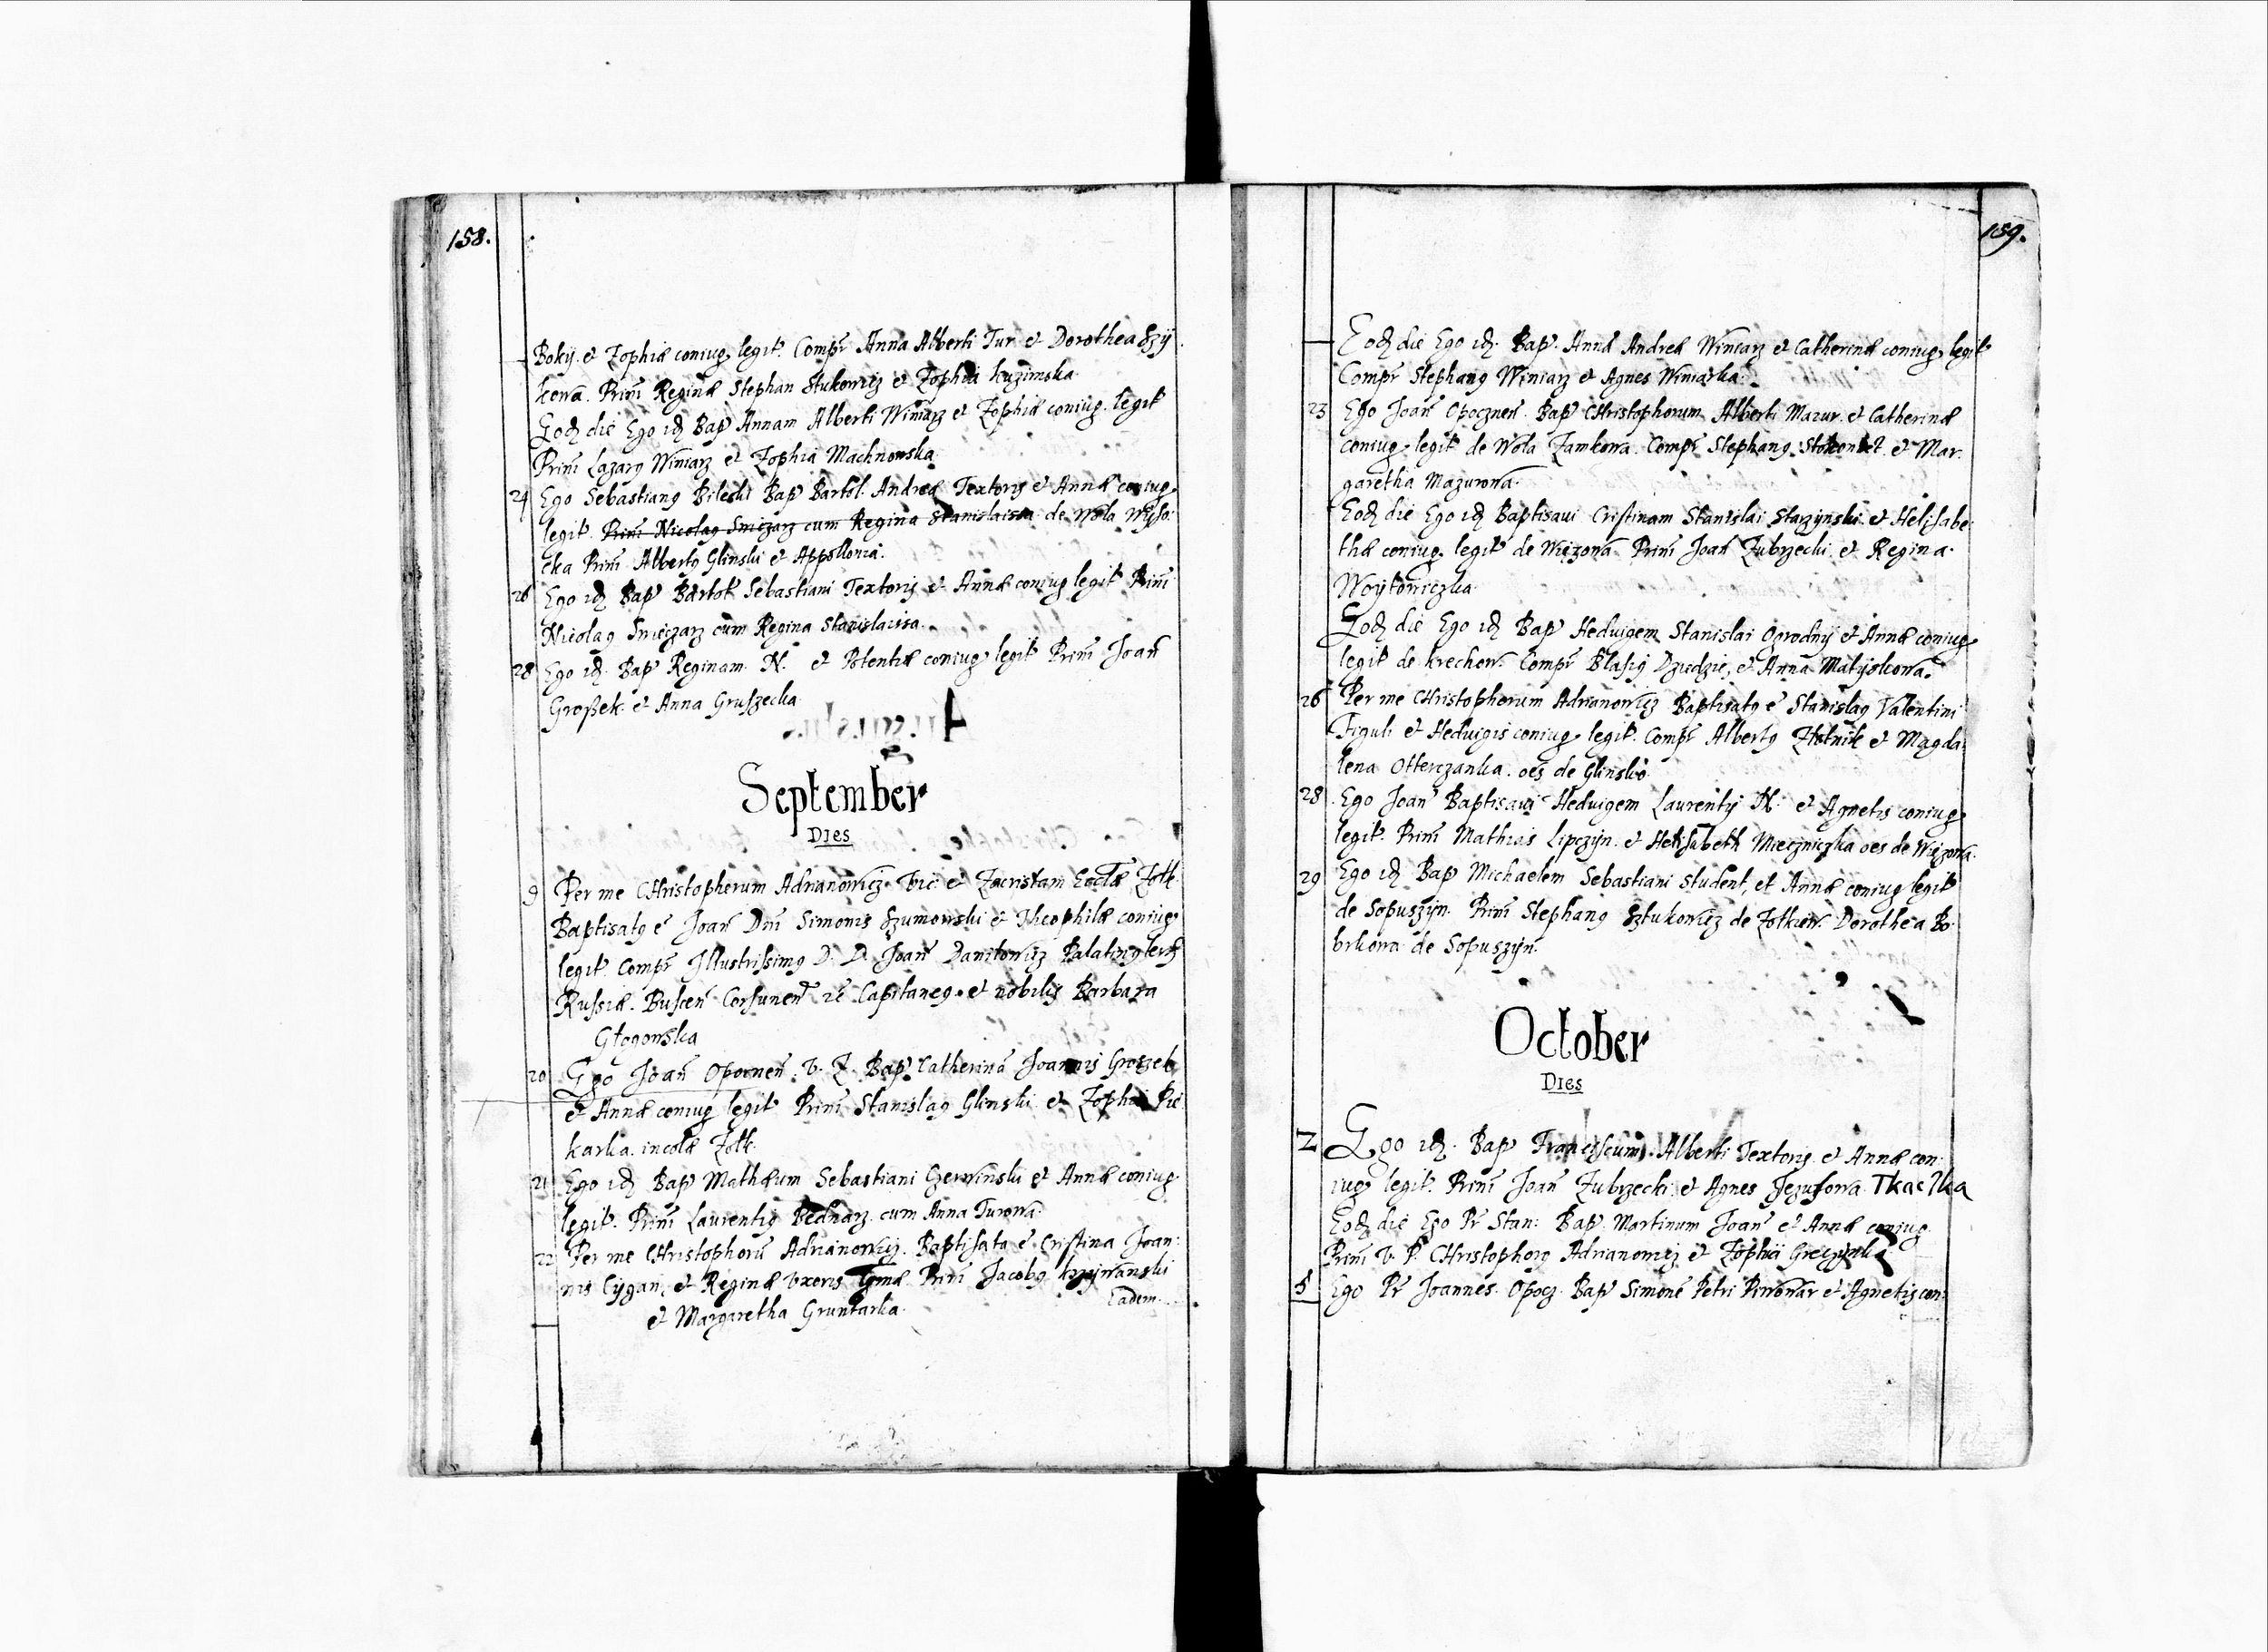 158.
Bokÿ. et Zophiæ coniug, legit. Compr Anna Alberti Tur. et Dorothea Szÿ
kowa. Prim Reginæ Stephan Stukowicz et Zophia Kuzimska.
Eod die Ego id Bap Annam Alberti Winiarz et Zophiæ coniug. legit
Prim Lazarg Winiarz et Zophia Machnowska.
24 Ego Sebastiang Bileski Bap Bartol. Andreæ Textoris et Annæ coniug
legit. Prim Nicolag Sniczarz cum Regina Stanislaissa de Wola Wyso:
cka Prim Albertg Glinski et Appollonia.
26 Ego id Bap Bartol Sebastiani Textoris et Annæ coniug legit Prim
Nicolag Snieczarz cum Regina Stanislaissa.
28 Ego id. Bap Reginam N. et Potentiæ coniug, legit Prim Joan
Großek. et Anna Gruszecka.
September
Dies
9 Per me CHristophorum Adrianowicz. Vic: et Zacristam Eccłæ Zołk.
Baptisatg e Joan Dni Simonis Szumowski et Theophilæ coniug
legit. Compr Illustrissimg D. D. Joan Daniłowicz Palatingterr
Russiæ. Buscen Corsunen re Capitaneg. et nobilis Barbara
Głogowska
20 Ego Joan Opocnen. V. Z. Bap Catherina Joannis Groszek
et Annæ coniug legit Prim Stanislag Glinski et Zophia Pie
karka. incolæ Zołk.
21 Ego id Bap Mathæum Sebastiani Czerwinski et Annæ coniug
legit. Prim Laurentig Bednarz. cum Anna Turowa.
22 Per me CHristophoru Adrianowicz. Baptisata e Cristina Joan:
nis Cÿgan, et Reginæ Vxoris Prim Jacobg
et Margaretha Gruntarka. Eadem.
159.
Eod die Ego id. Bap. Annæ Andreæ Winiarz et Catherinæ coniug, legit
Compr Stephang Winiarz et Agnes Winiarka.
23 Ego Joan Opocznen. Bap CHristophorum Alberti Mazur. et Catherinæ
coniug, legit de Wola Zamkowa. Compr Stephang et Mar.
garetha Mazurowa.
Eod die Ego id Baptisaui Cristinam Stanislai Starzynski. et Helisabe:
thæ coniug, legit de Wiązowa Prim Joan Zubrzecki et Regina.
Woytowiczka.
Eod die Ego id Bap Heduigem Stanislai Ogrodnÿ et Annæ coniug
legit de Krechow. Compr Blasig Dziedzic, et Anna Matyskowa.
26 Per me CHristophorum Adrianowicz Baptisatg e Stanislag Valentini
Figuli et Heduigis coniug, legit. Compr Albertg Złotnik et Magda:
lena Otterczanka. oes de Glinsko.
28 Ego Joan Baptisaui Heduigem Laurentÿ N. et Agnetis coniug
legit. Prim Mathias Lipczÿn. et Helisabeth Mieczniczka oes de Wiązowa.
29 Ego id Bap Michaelem Sebastiani Student, et Annæ coniug legit
de Sopuszÿn. Prim Stephang Sztukowicz de Zołkiew. Dorothea Bo:
brkowa de Sopuszÿn.
October
Dies
2 Ego id. Bap Franciscum. Alberti Textoris. et Annæ con:
iug, legit. Prim Joan Zubrzecki et Agnes Jezusowa. Tkaczka
Eod die Ego Pr Stan: Bap. Martinum Joan et Annæ coniug.
Prim V. P. CHristophorg Adrianowicz et Zophia
5 Ego Pr Joannes. Opocz. Bap Simone Petri Piwowar et Agnetis con: